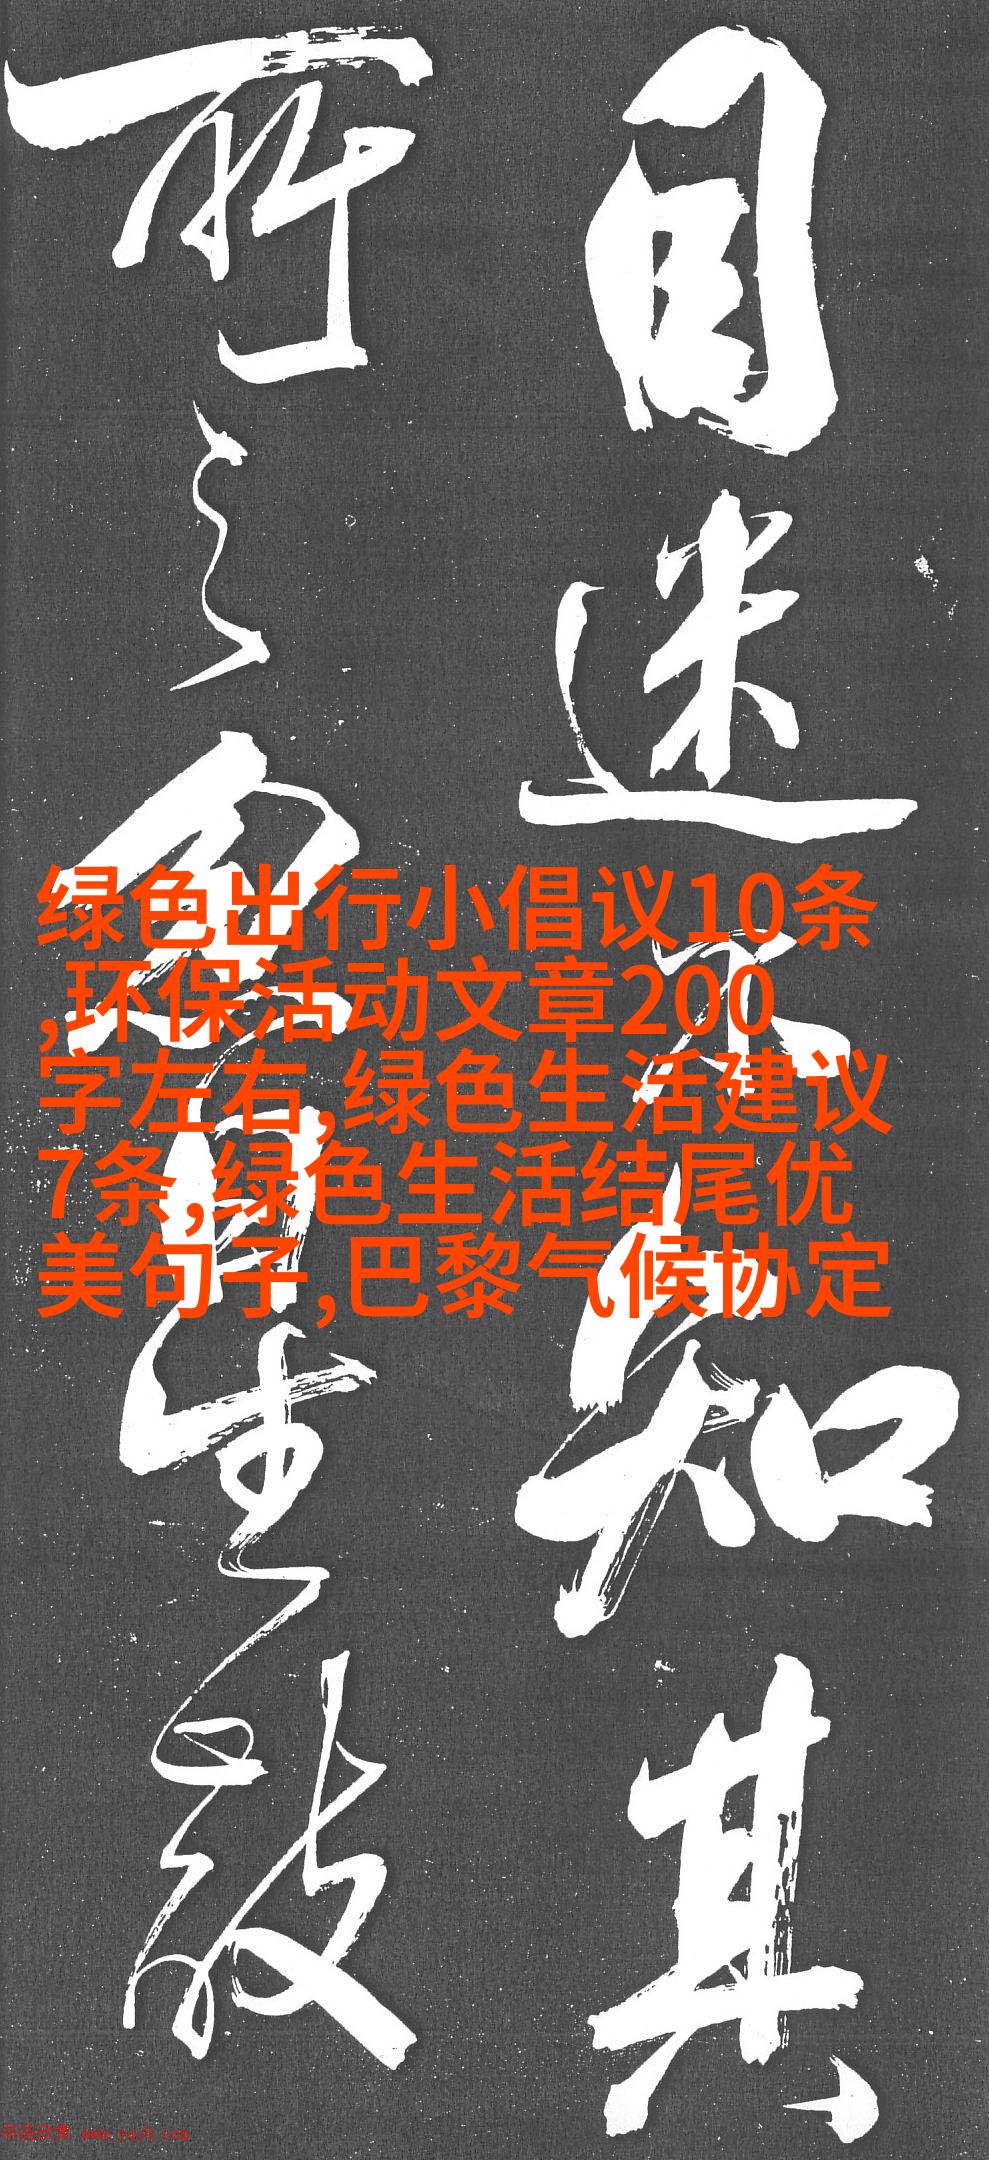 目迷不知其
所之自生
绿色出行小倡议10条
,环保活动文章200
字左右,绿色生活建议
7条,绿色生活结尾优
美句子,巴黎气候协定